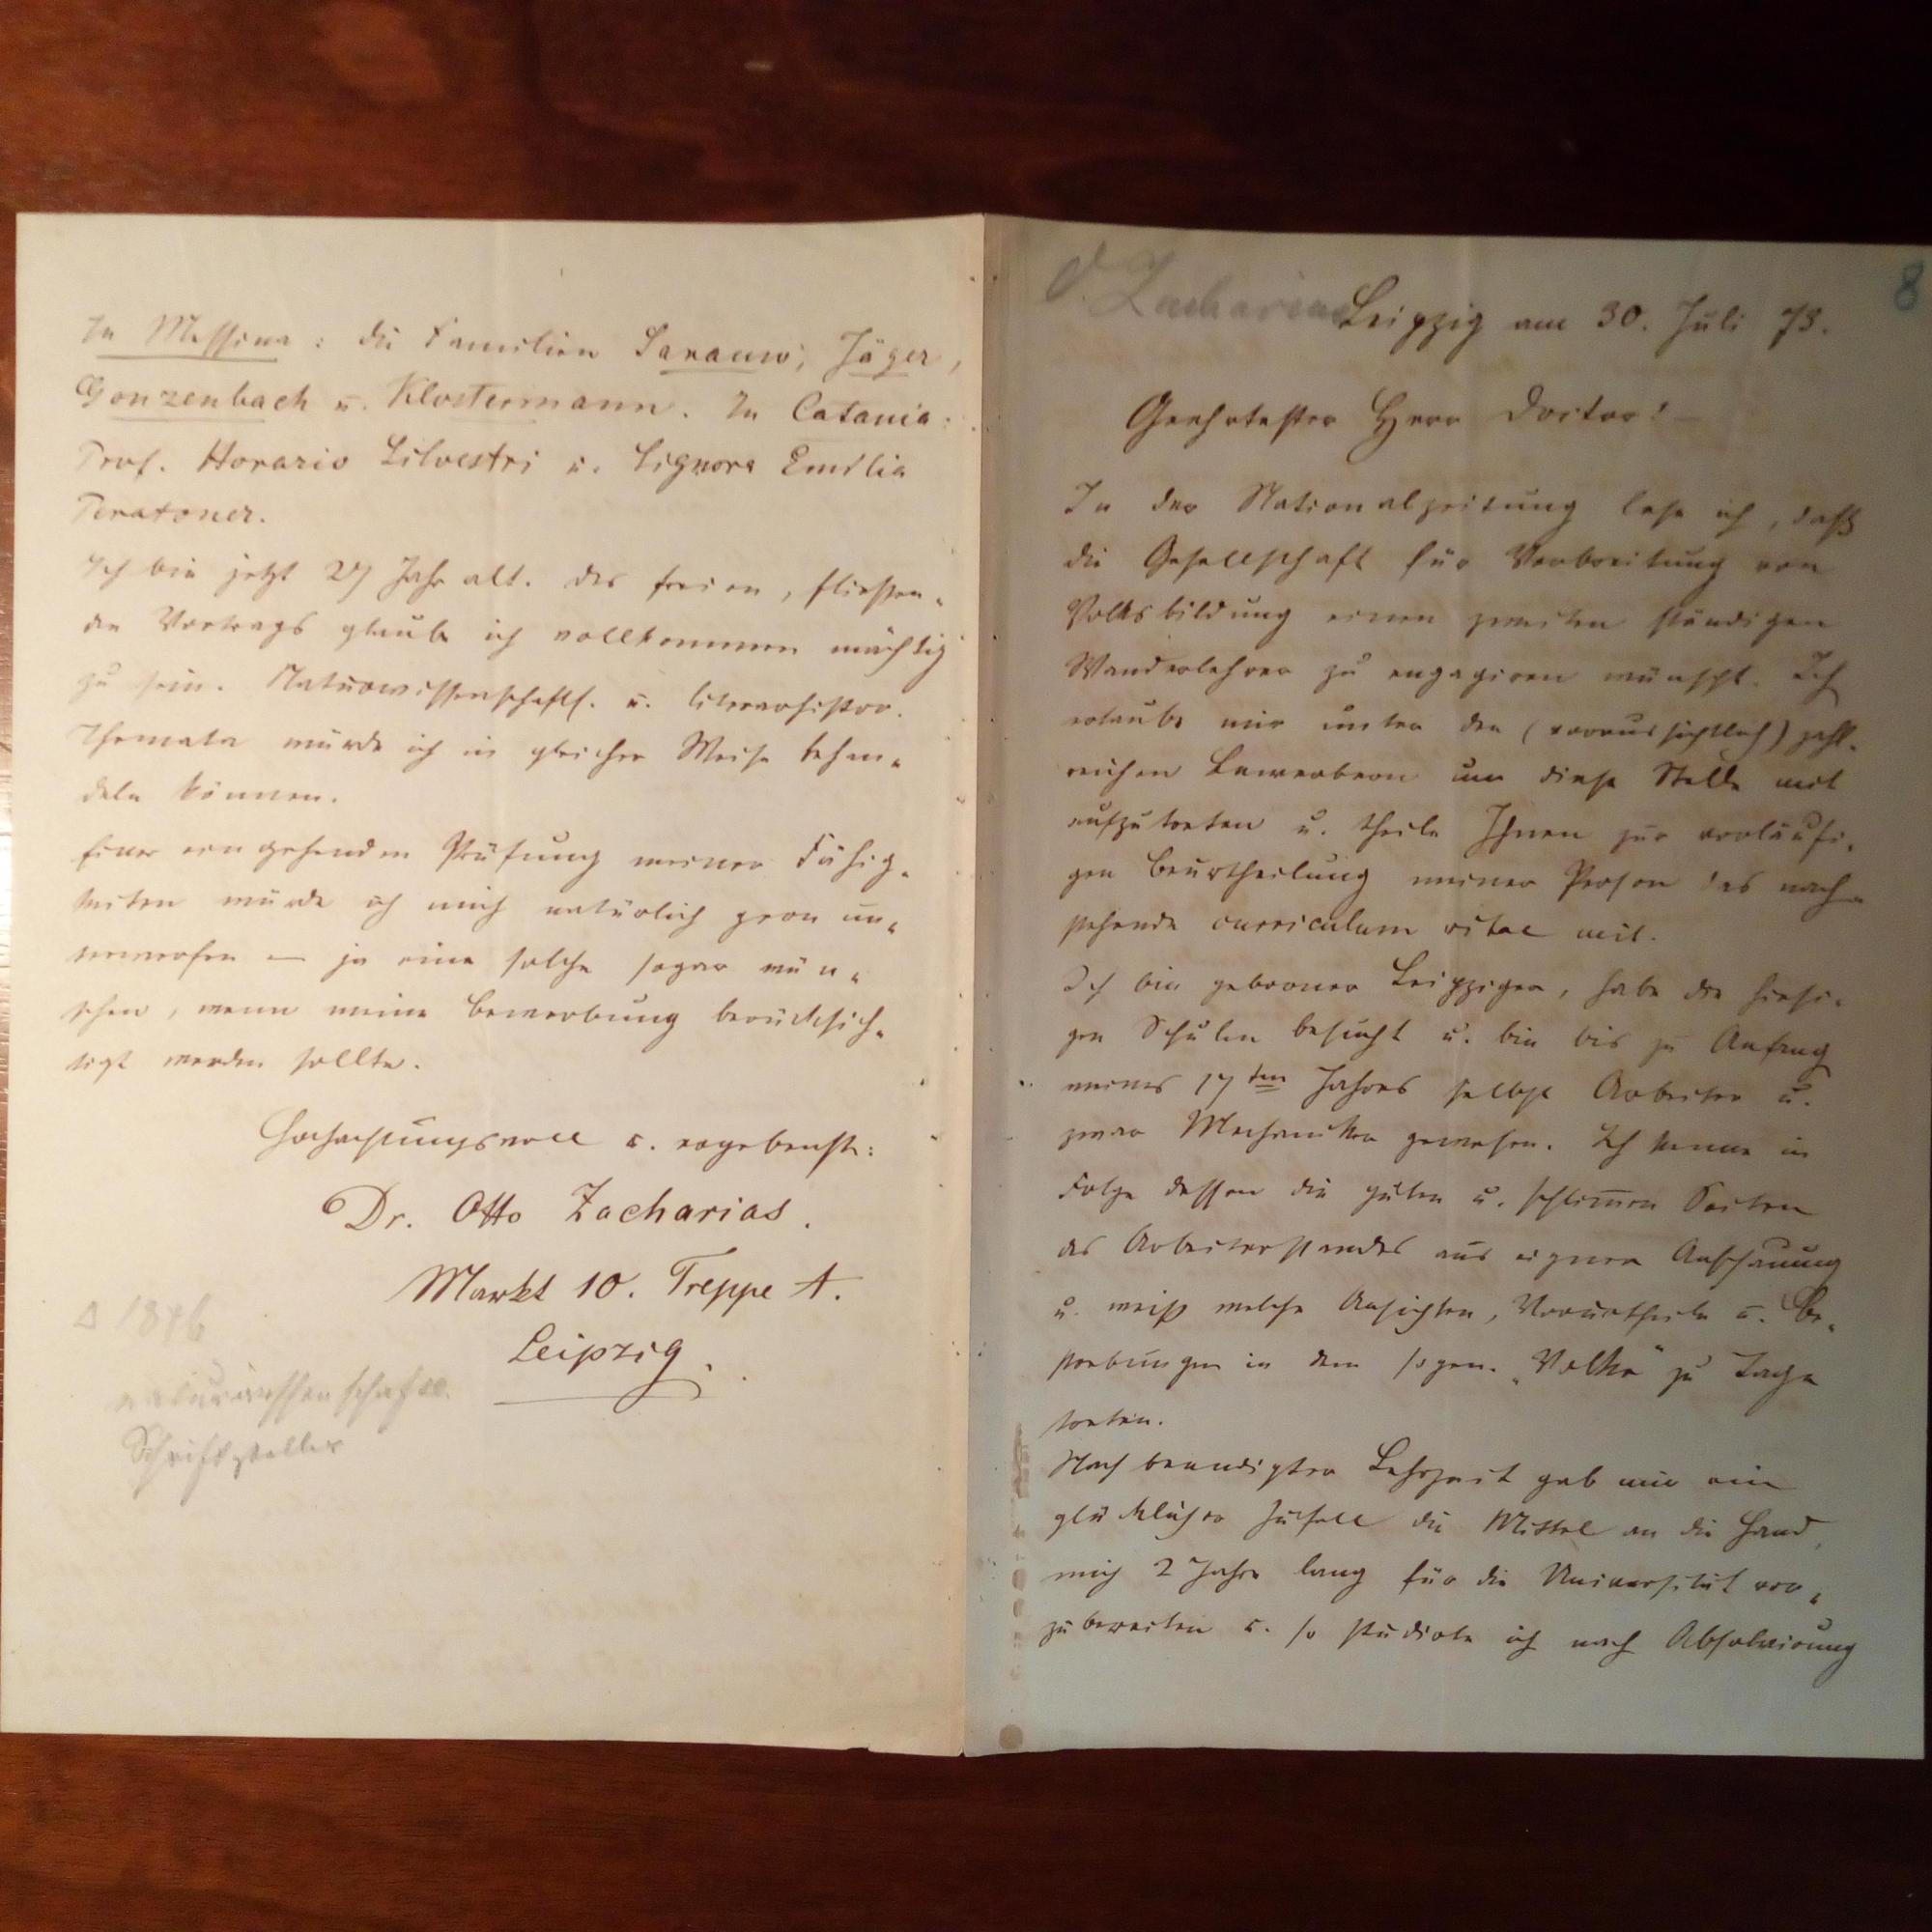 O. Zacharias
8
Leipzig am 30. Juli 73.
Geehrtester Herr Doctor! —
In der Nationalzeitung lese ich, daß
die Gesellschaft für Verbreitung von
Volksbildung einen zweiten ständigen
Wanderlehrer zu engagiren wünscht. Ich
erlaube mir unter den (voraussichtlich) zahl-
reichen Bewerbern um diese Stelle mit
aufzutreten u. theile Ihnen zur vorläufi-
gen Beurtheilung meiner Person das nach-
stehende curriculum vitae mit.
Ich bin geborener Leipziger, habe die hiesi-
gen Schulen besucht u. bin bis zu Anfang
meines 17ten Jahres selbst Arbeiter u.
zwar Mechaniker gewesen. Ich kenne in
Folge dessen die guten u. schlimen Seiten
des Arbeiterstandes aus eigner Anschauung
u. weiß welche Ansichten, Vorurtheile u. Be-
strebungen in dem sogen. „Volke" zu Tage
treten.
Nach beendigter Lehrzeit gab mir ein
glücklicher Zufall die Mittel an die Hand,
mich 2 Jahre lang für die Universität vor-
zubereiten u. so studirte ich nach Absolvirung
In Messina: die Familien Sarauw, Jäger,
Gonzenbach u. Klostermann. In Catania:
Prof. Horazio Silvestri u. Signora Emilia
Peratoner.
Ich bin jetzt 27 Jahr alt. Des freien, fliessen-
den Vortrags glaube ich vollkommen mächtig
zu sein. Naturwissenschaftl. u. literarhistor.
Themata würde ich in gleicher Weise behan-
deln können.
Einer eingehenden Prüfung meiner Fähig-
keiten würde ich mich natürlich gern un-
terwerfen — ja eine solche sogar wün-
schen, wenn meine Bewerbung berücksich-
tigt werden sollte.
Hochachtungsvoll u. ergebenst:
Dr. Otto Zacharias.
Markt 10. Treppe A.
Leipzig.
1846
naturwissenschaftl.
Schriftsteller